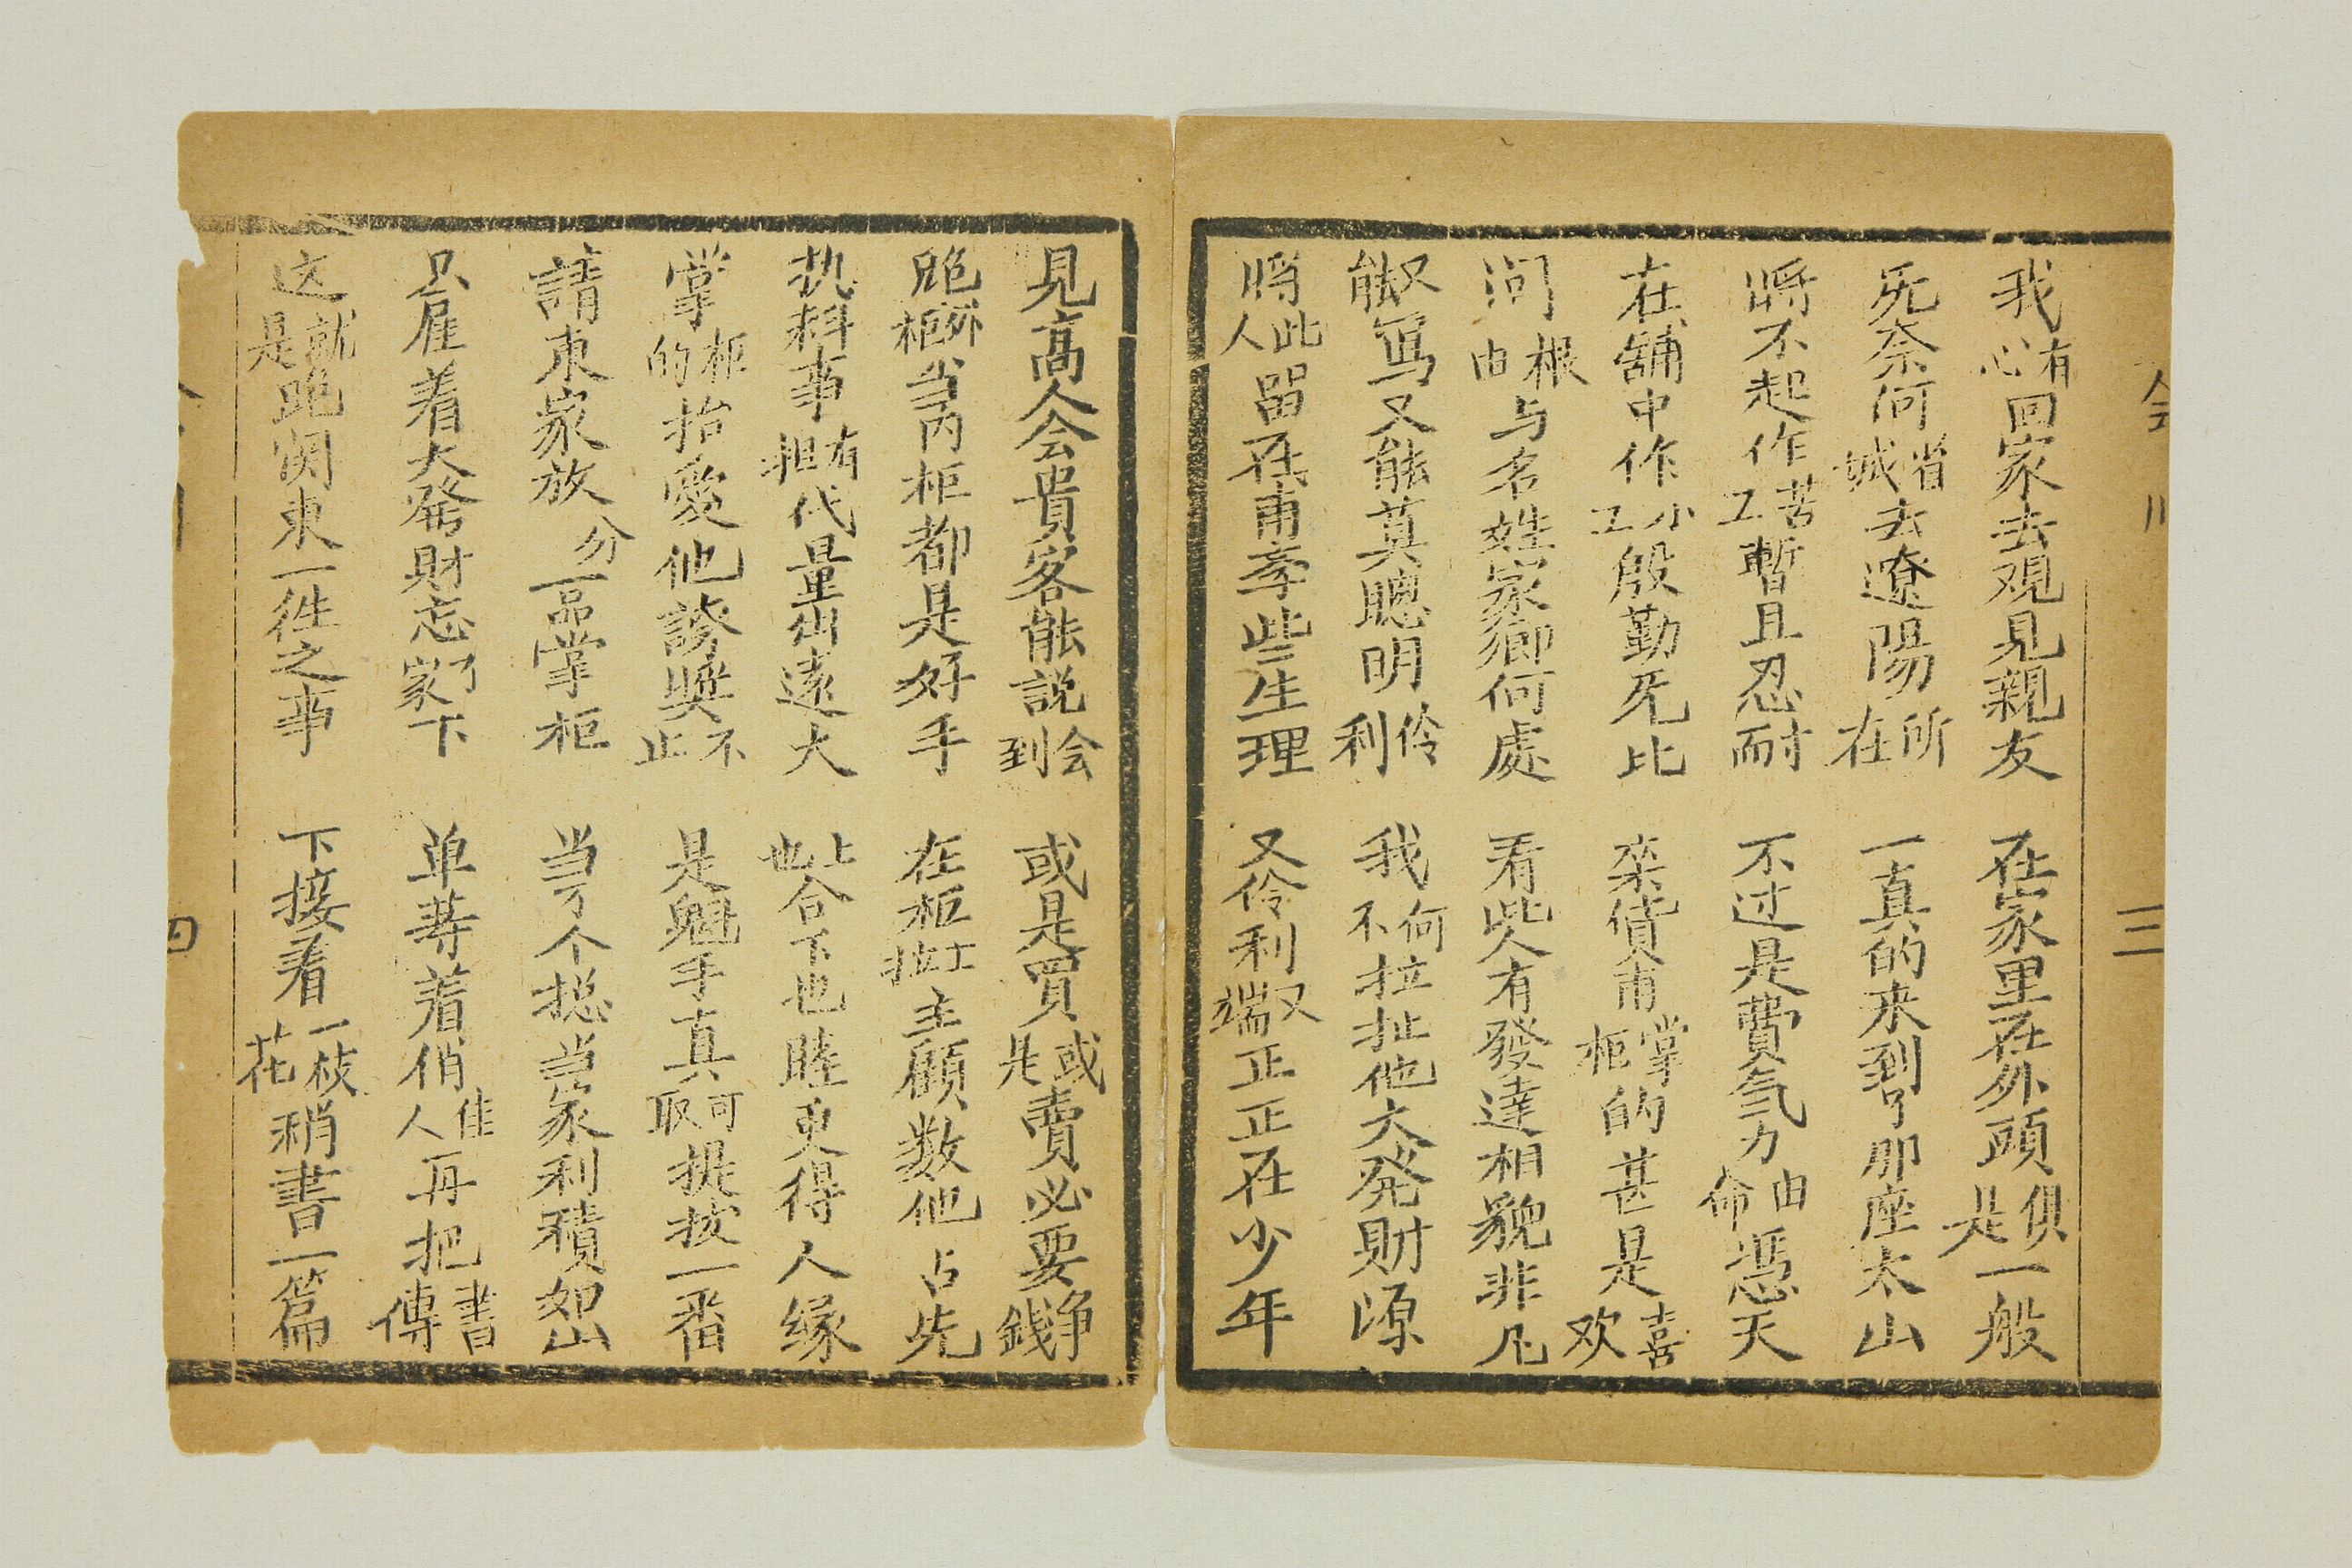 我有心回家去观見親友　在家里在外頭俱是一般
旡奈何省城去遼陽所在　一直的来到了那座太山
將不起作苦工暫且忍耐　不过是費氣力由命憑天
在舖中作小工殷勤旡比　栾债甫掌柜的甚是喜欢
问根由与名姓家鄉何處　看此人有發達相貌非凡
又能寫又能莫聰明伶利　我何不拉扯他大発財源
將此人留在甫李些生理　又伶利又端正正在少年
三
見高人会貴客能説会到　或是買或是賣必要争錢
跑外柜当内柜都是好手　在柜上主顧数他占先
执料事有担代量出遠大　上也合下也睦更得人缘
掌柜的抬愛他誇奬不止　是魁手真可取提拔一番
請東家放分一品掌柜　当了个捴当家利積如山
只雇着大発財忘了家下　单等着俏佳人再把書傳
这就是跑関東一徃之事　下接看一枝花稍書一篇